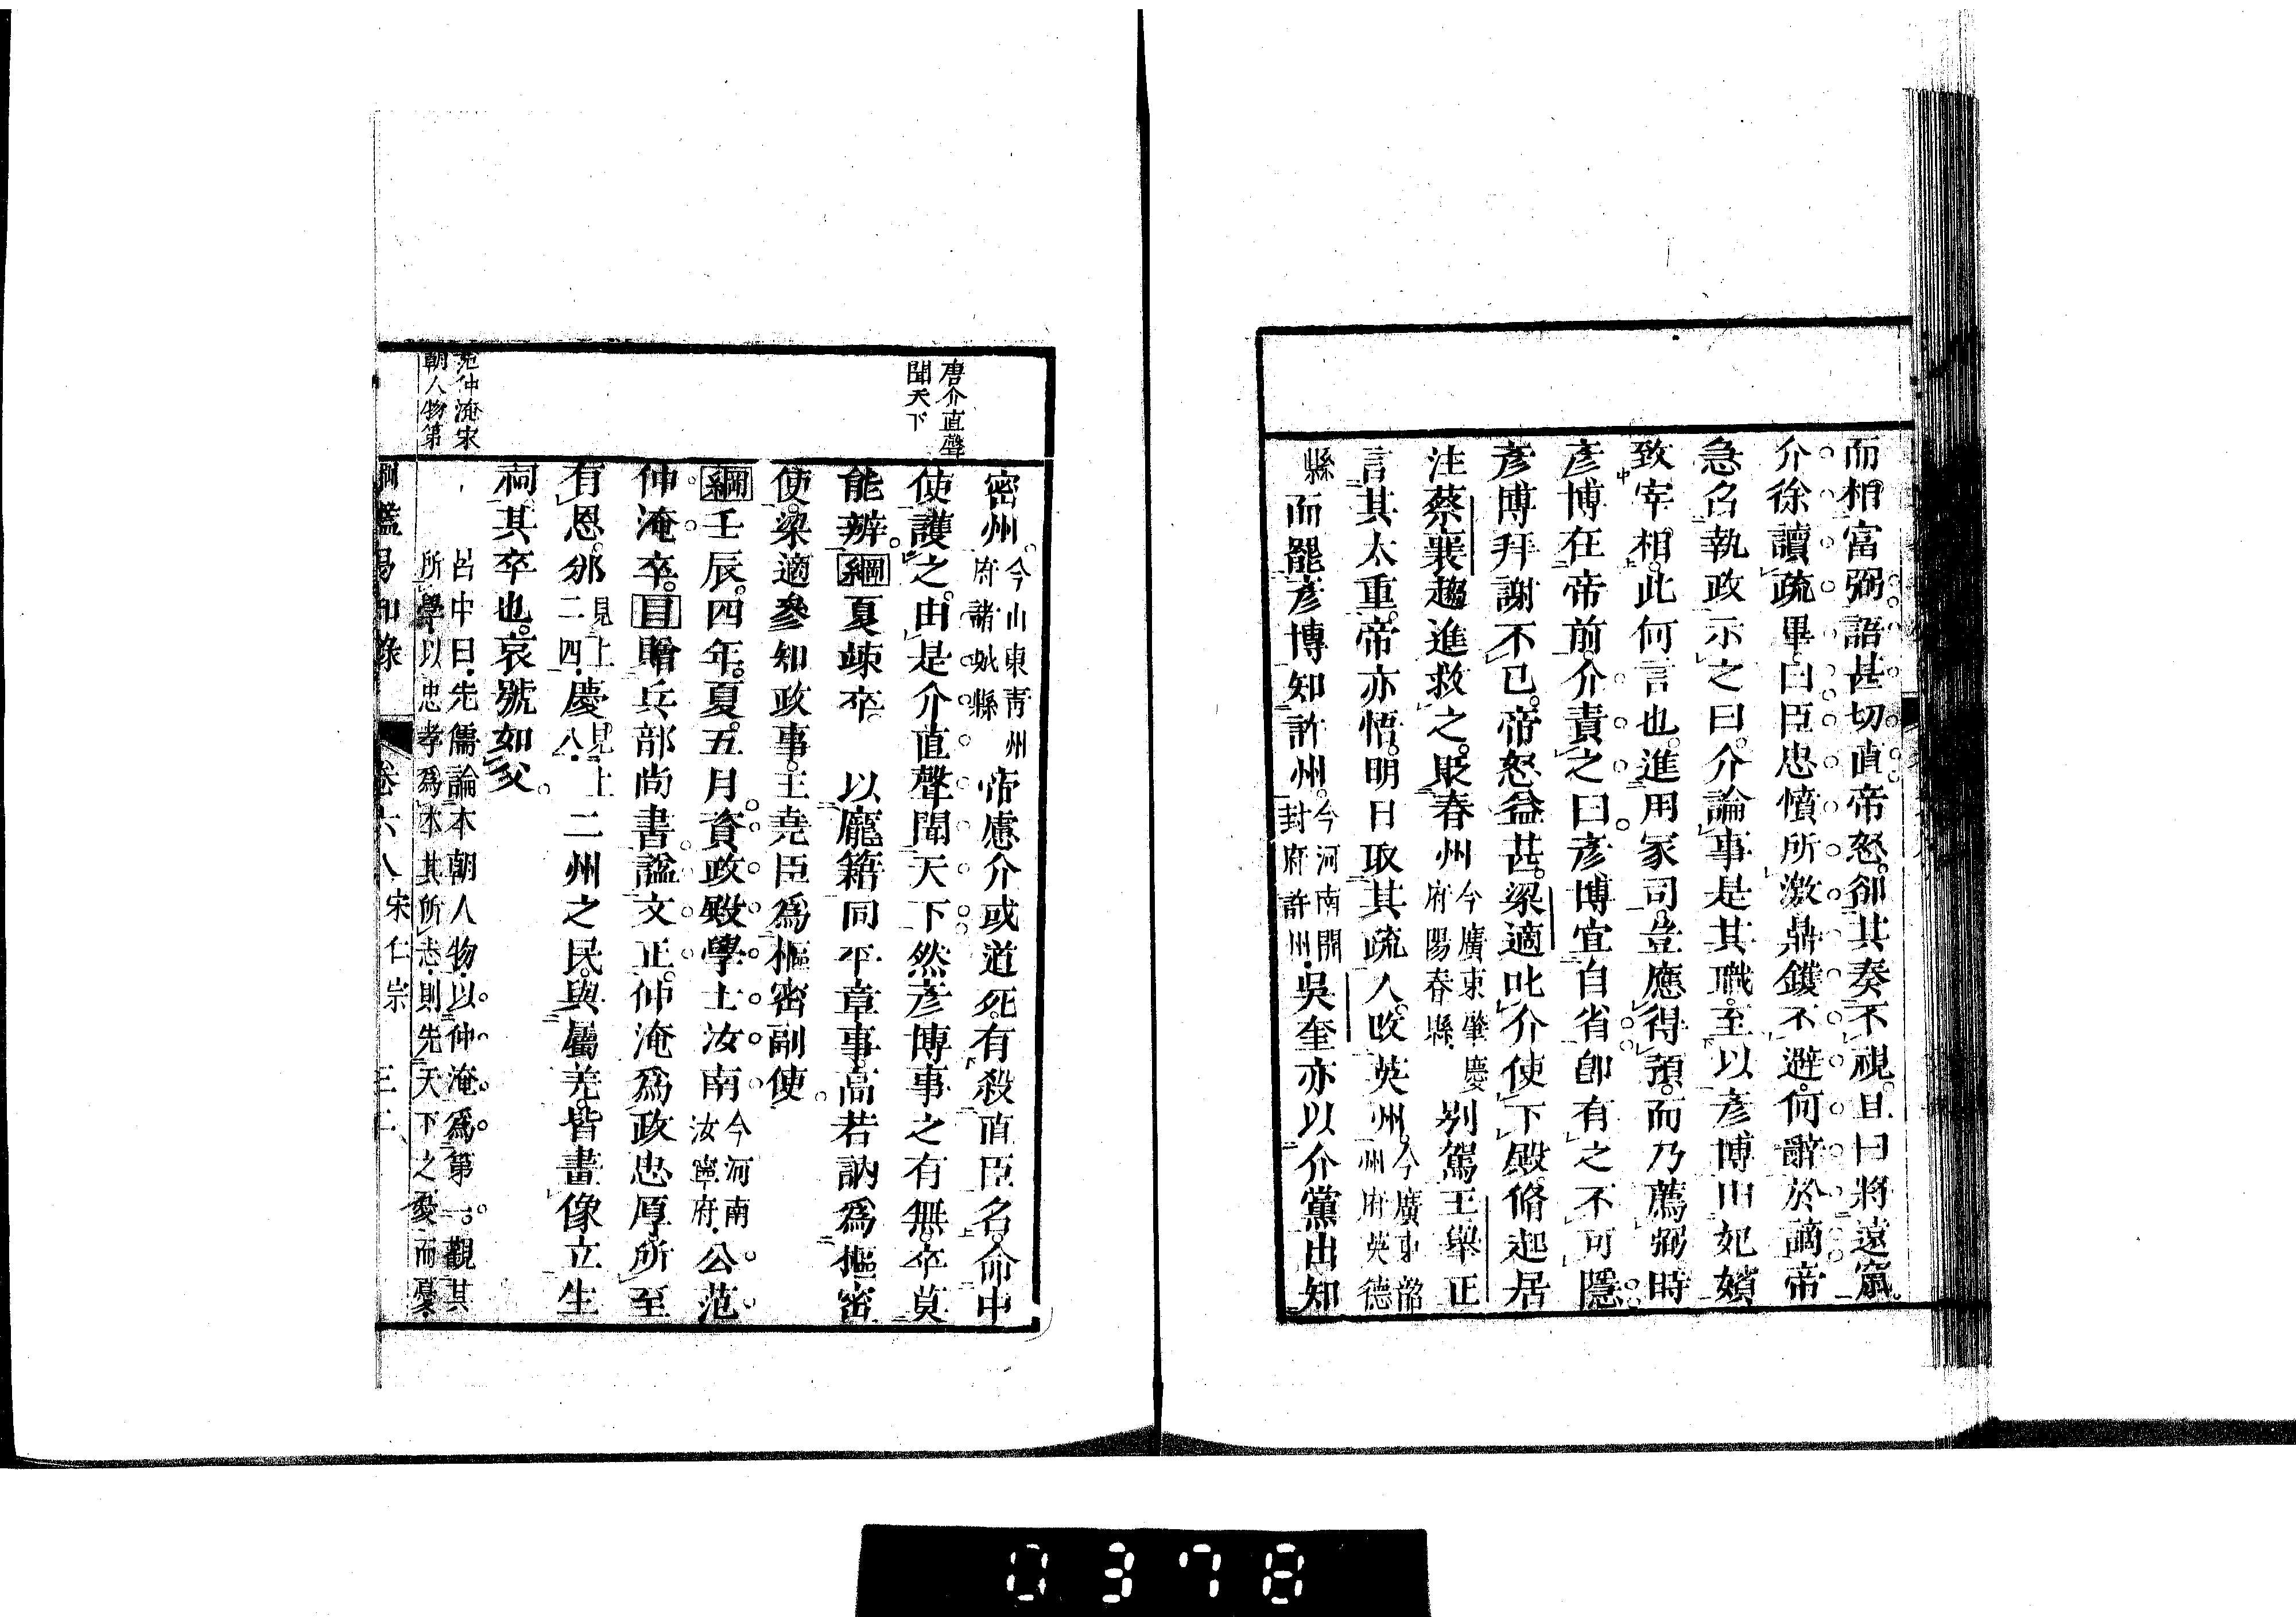 而相富弼。語甚切直。帝怒。卻其奏不視。且曰將遠竄。
介徐讀疏畢。曰臣忠憤所激鼎鑊不避。何辭於謫帝
急召執政示之曰。介論事是其職。至以彥博由妃嬪
致宰相。此何言也。進用冢司。豈應得預。而乃薦弼時
彥博在帝前。介責之曰。彥博宜自省。卽有之不可隱
彥博拜謝不已。帝怒益甚。梁適叱介使下殿。脩起居
注蔡襄趨進救之。貶春州今廣東肇慶府陽春縣。別駕王舉正
言其太重。帝亦悟。明日取其疏入。改英州。今廣東韶州府英德
縣而罷彥博知許州。今河南開封府許州。吳奎亦以介黨出知
密州。今山東青州府諸城縣帝慮介或道死。有殺直臣名。命中
使護之。由是介直聲聞天下然彥博事之有無。卒莫
能辨。綱夏竦卒。以龐籍同平章事。高若訥爲樞密
使。梁適參知政事。王堯臣爲樞密副使。
綱壬辰。四年。夏。五月。資政殿學士汝南今河南汝寧府。公范
仲淹卒。目贈兵部尚書。謚文正。仲淹爲政忠厚。所至
有恩。邠見上二四。慶見上八。二州之民。與屬羌。皆畫像立生
祠。其卒也。哀號如父。
呂中曰。先儒論本朝人物。以仲淹爲第一。觀其
所學。以忠孝爲本。其所志。則先天下之憂而憂。
唐介直聲
聞天下
范仲淹宋
朝人物第
綱鑑易知錄 卷六八 宋仁宗
0378